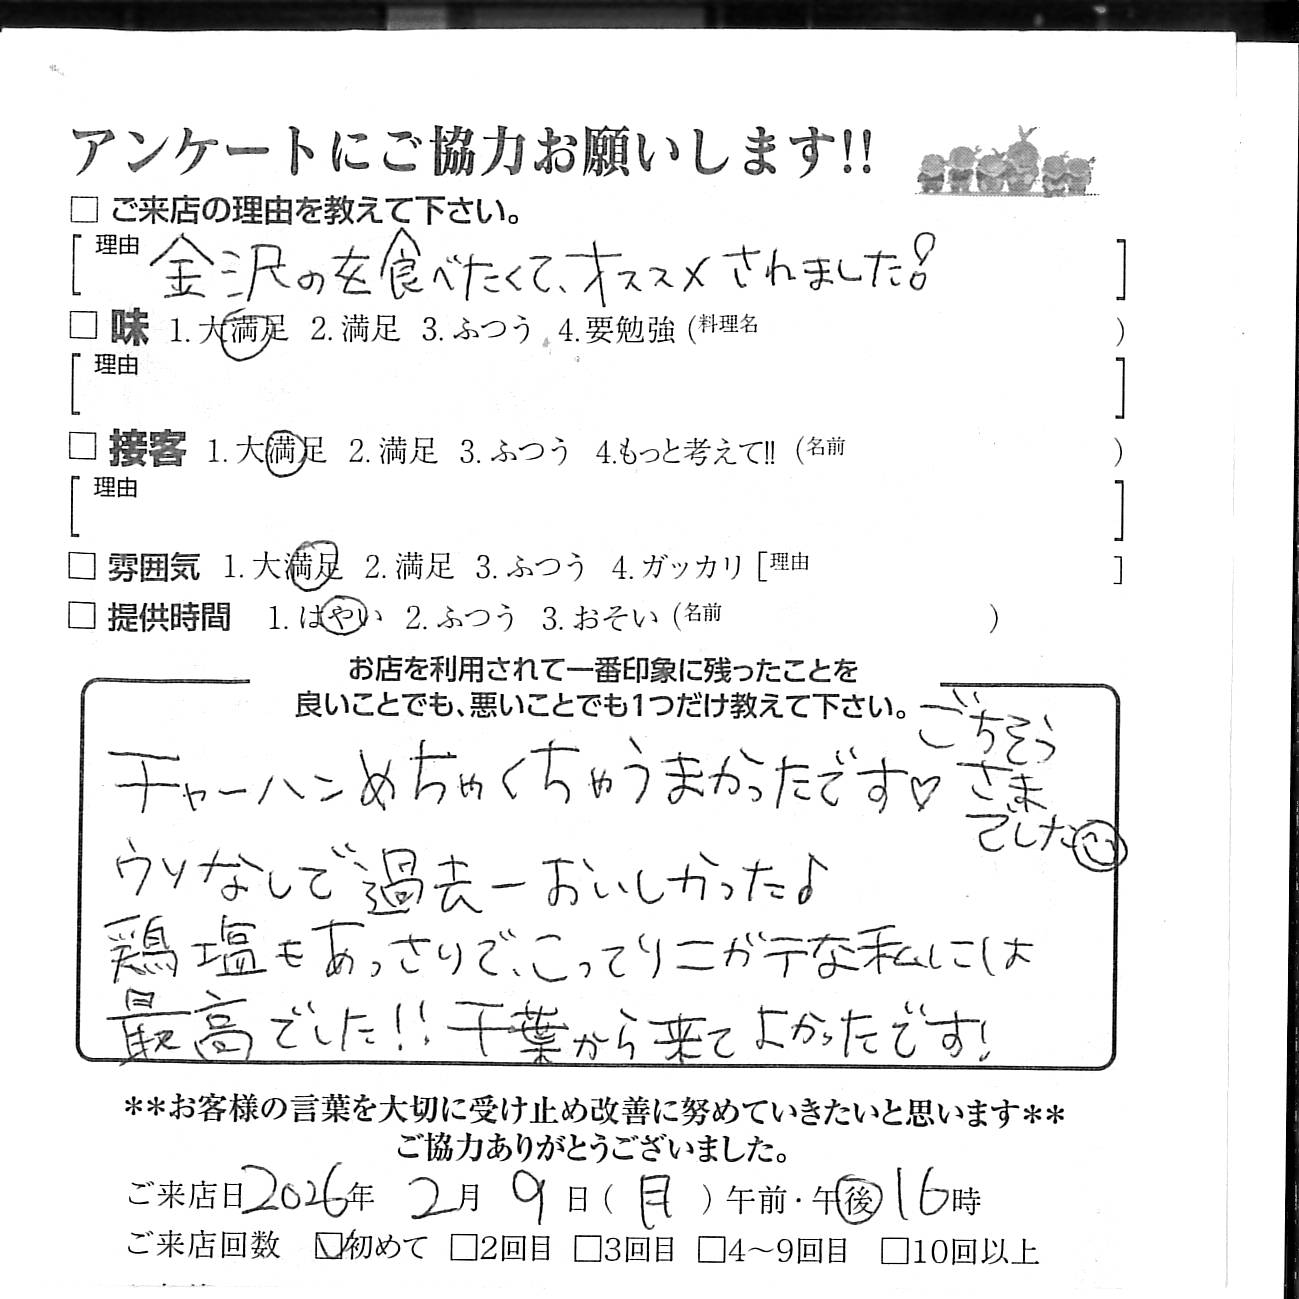 アンケートにご協力お願いします!!
□ ご来店の理由を教えて下さい。
[理由 金沢のを食べたくて、オススメされました! ]
□ 味 1.大満足 2.満足 3.ふつう 4.要勉強 (料理名 )
[理由 ]
□ 接客 1.大満足 2.満足 3.ふつう 4.もっと考えて!! (名前 )
[理由 ]
□ 雰囲気 1.大満足 2.満足 3.ふつう 4.ガッカリ [理由 ]
□ 提供時間 1.はやい 2.ふつう 3.おそい (名前 )
お店を利用されて一番印象に残ったことを
良いことでも、悪いことでも1つだけ教えて下さい。
チャーハンめちゃくちゃうまかったです♡
ウソなしで過去一おいしかった♪
鶏塩もあっさりで、こってりニガテな私には
最高でした!! 千葉から来てよかったです!
ごちそう
さま
でした
**お客様の言葉を大切に受け止め改善に努めていきたいと思います**
ご協力ありがとうございました。
ご来店日 2026年 2月 9日(月)午前・午後 16時
ご来店回数 ☑初めて □2回目 □3回目 □4〜9回目 □10回以上